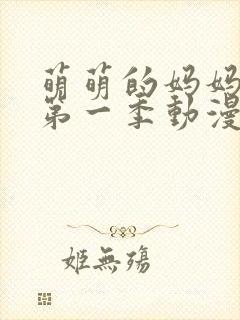 萌萌的妈妈
第一季動漫
姬無殤